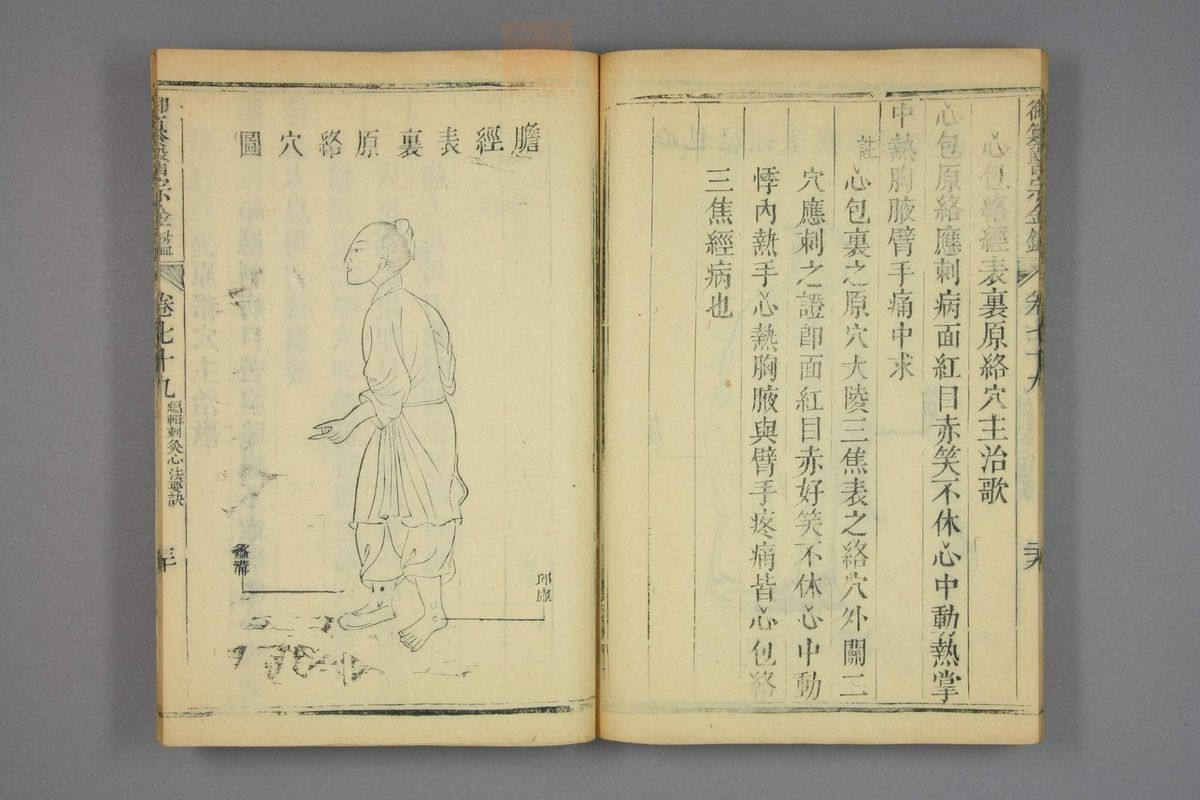 心包絡經表裏原絡穴主治歌
心包原絡應刺病面紅目赤笑不休心中動熱掌
中熱胸腋臂手痛中求
註
心包裏之原穴大陵三焦表之絡穴外關二
穴應刺之證卽面紅目赤好笑不休心中動
悸內熱手心熱胸腋與臂手疼痛皆心包絡
三焦經病也
膽經表裏原絡穴圖
邱墟
蠡溝
卷七十九
編輯刺灸心法要訣